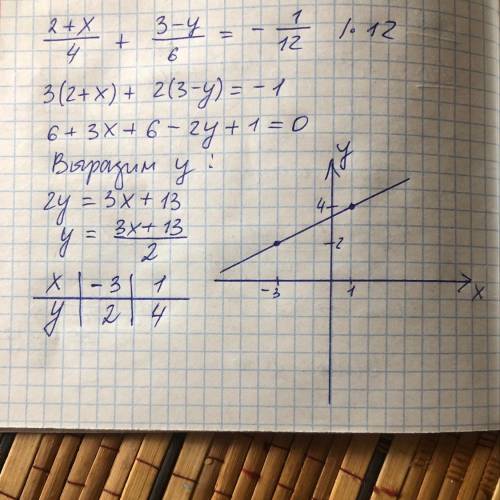 (2+x)/4 + (3-y)/6 = - 1/12 /·12
3(2+x) + 2(3-y) = -1
6 + 3x + 6 - 2y + 1 = 0
Выразим y:
2y = 3x + 13
y = (3x + 13)/2
x | -3 | 1
y | 2 | 4
y
4
2
-3 1 x